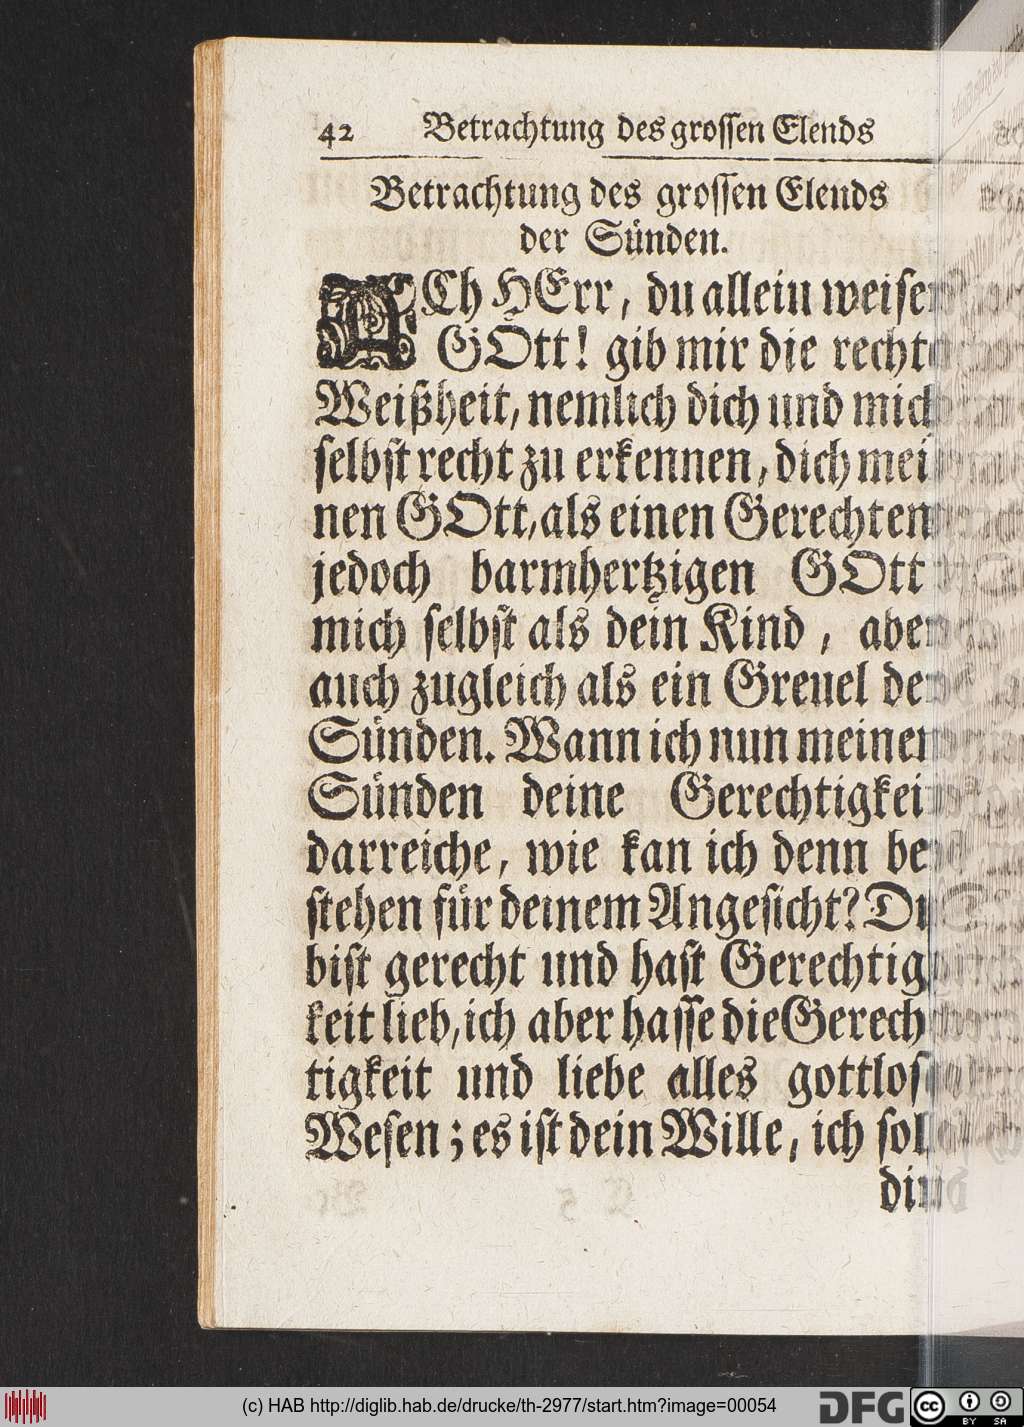 42 Betrachtung des grossen Elends
Betrachtung des grossen Elends
der Sünden.
ACh HErr, du allein weiser
GOtt! gib mir die rechte
Weißheit, nemlich dich und mich
selbst recht zu erkennen, dich mei
nen GOtt, als einen Gerechten
jedoch barmhertzigen GOtt
mich selbst als dein Kind, aber
auch zugleich als ein Greuel der
Sünden. Wann ich nun meinen
Sünden deine Gerechtigkei
darreiche, wie kan ich denn be
stehen für deinem Angesicht? Du
bist gerecht und hast Gerechtig
keit lieb, ich aber hasse die Gerech
tigkeit und liebe alles gottlos
Wesen; es ist dein Wille, ich sol
(c) HAB http://diglib.hab.de/drucke/th-2977/start.htm?image=00054
DFG
cc
BY SA